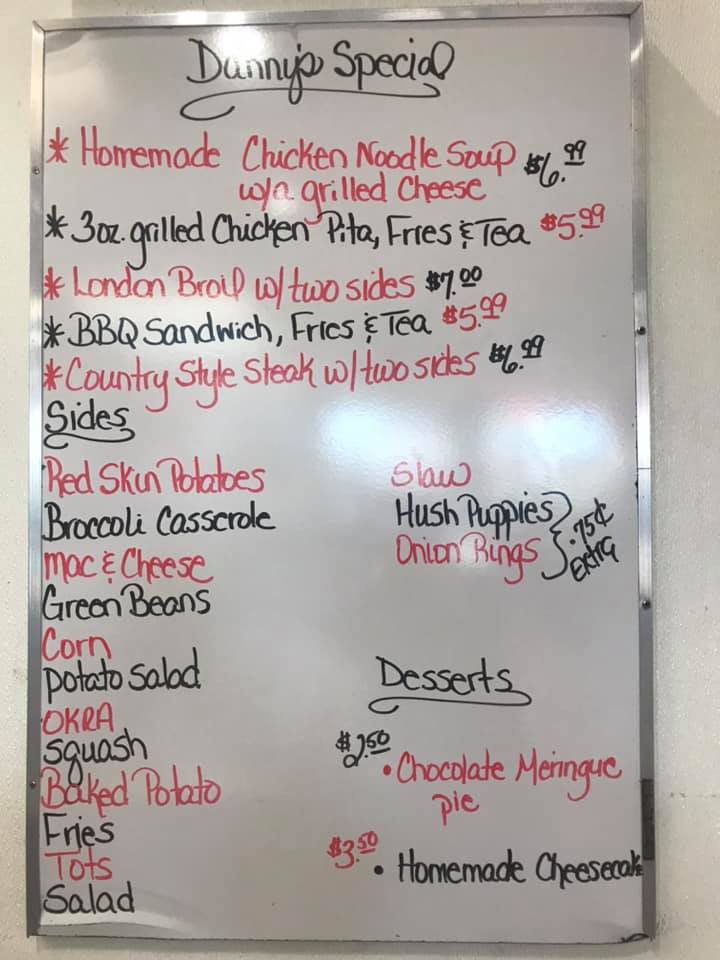 Danny's Special
* Homemade Chicken Noodle Soup $6.99
w/a grilled Cheese
* 3oz. grilled Chicken Pita, Fries & Tea $5.99
* London Broil w/ two sides $7.00
* BBQ Sandwich, Fries & Tea $5.99
* Country Style Steak w/ two sides $6.99
Sides
Red Skin Potatoes
Broccoli Casserole
Mac & Cheese
Green Beans
Corn
potato Salad
OKRA
squash
Baked Potato
Fries
Tots
Salad
Slaw
Hush Puppies
Onion Rings
.75¢
Extra
Desserts
$2.50
• Chocolate Meringue
pie
$3.50
• Homemade Cheesecake